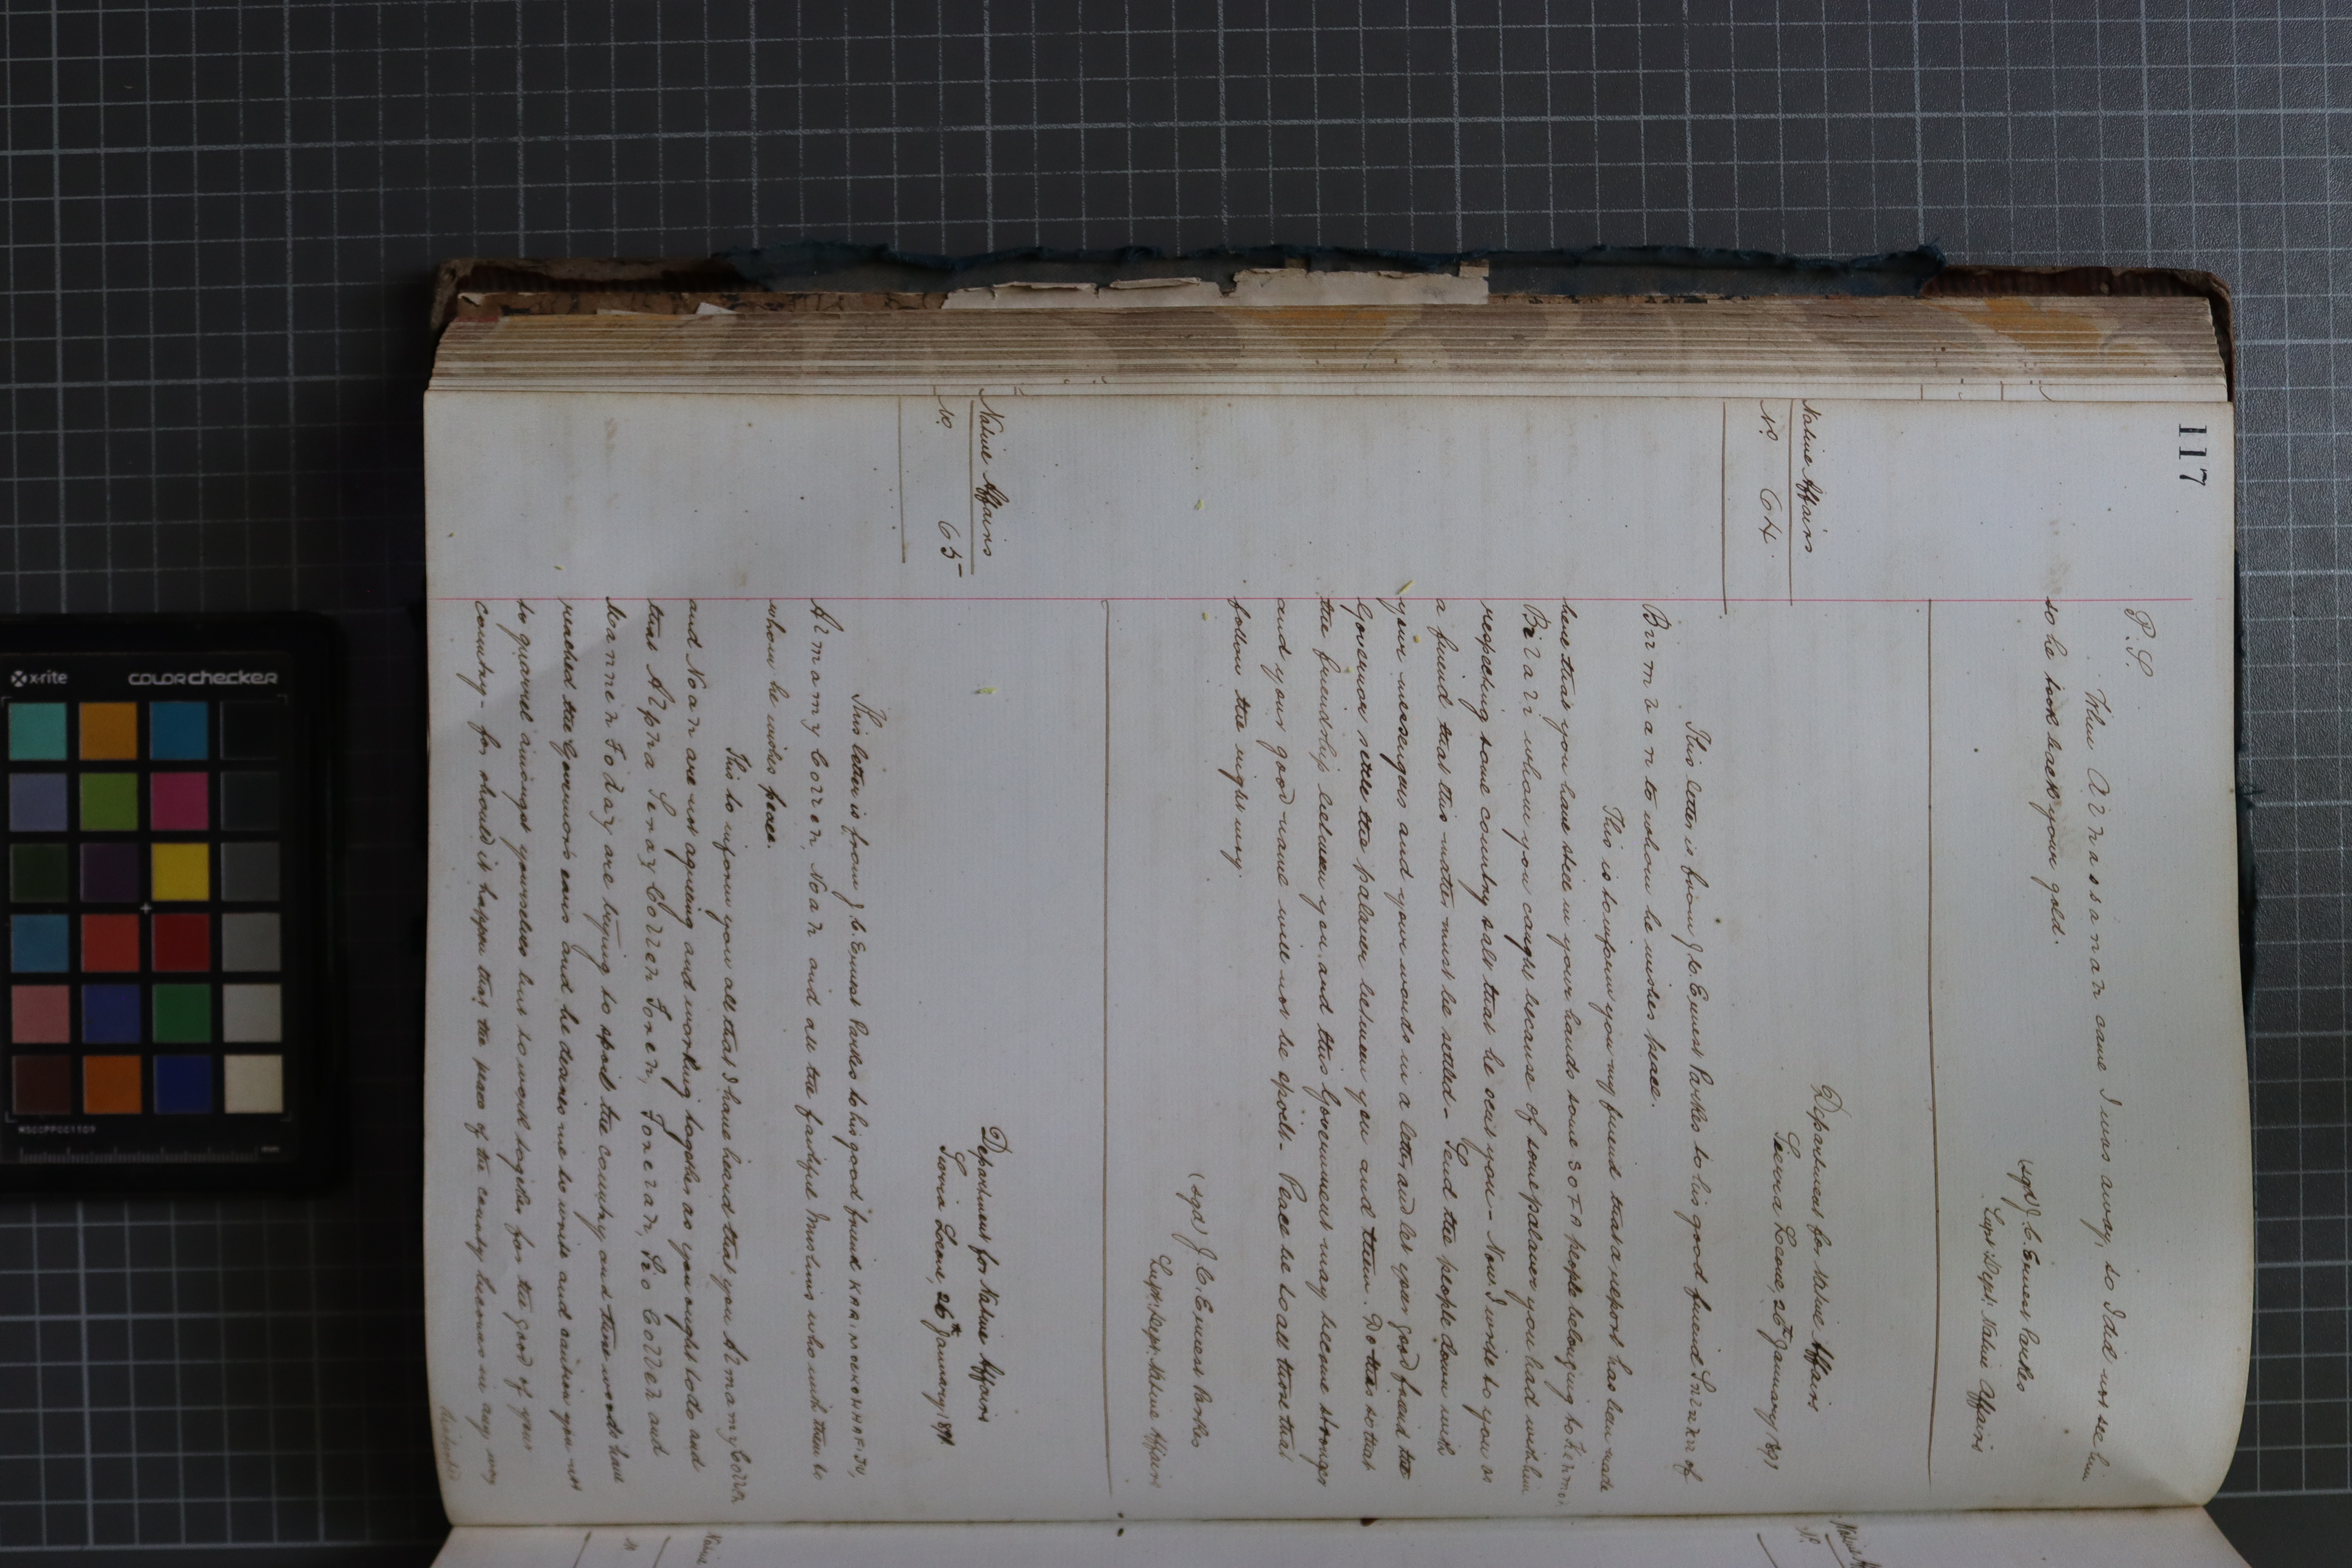 117
P.S.
When Alhassanah came I was away, so I did not see him
so he took back your gold.
(sgd) J. C. Ernest Parkes
Supt. Dept. Native Affairs
Native Affairs
No. 64.
Department for Native Affairs
Sierra Leone, 26th January 1891
This letter is from J. C. Ernest Parkes to his good friend of
to whom he wishes peace.
This is to inform you my friend that a report has been made
here that you have still in your hands some 30 people belonging to
whom you caught because of some palaver you had with him
respecting some country salt that he sent you - Now I write to you as
a friend that this matter must be settled - Send the people down with
your messengers and your words in a letter and let your good friend the
Governor settle the palaver between you and them. Do this so that
the friendship between you and this Government may become stronger
and your good name will not be spoilt - Peace be to all those that
follow the right way.
(sgd) J. C. Ernest Parkes
Supt. Dept. Native Affairs
Native Affairs
No. 65
Department for Native Affairs
Sierra Leone, 26th January 1891.
This letter is from J. C. Ernest Parkes to his good friend
Almamy and all the faithful Muslims who with them to
whom he wishes peace.
This to inform you all that I have heard that you Almamy
and are not agreeing and working together as you ought to do and
that Alpha and
are trying to spoil the country and these words have
reached the Governor's ears and he desires me to write and caution you not
to quarrel amongst yourselves but to work together for the good of your
country - for should it happen that the peace of the country becomes in any way
disturbed
x-rite
colorchecker
Native Affairs